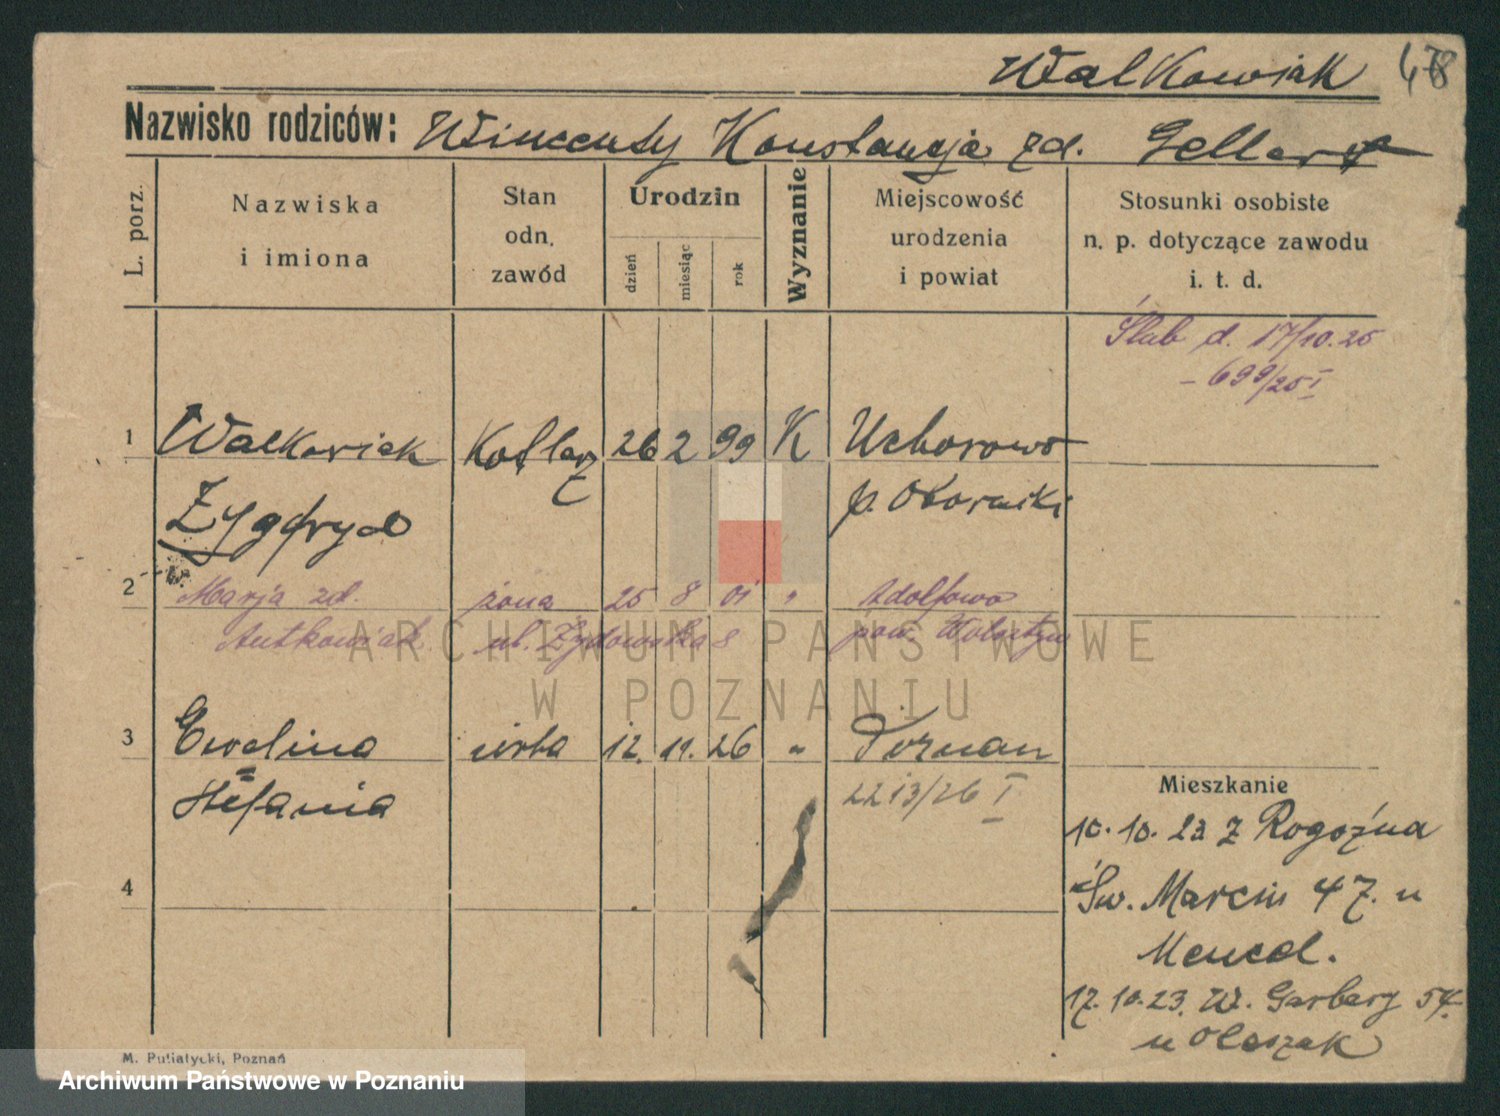 Walkowiak 478
Nazwisko rodziców: Wincenty Konstancja zd. Gellert
L. porz.
Nazwiska i imiona
Stan odn. zawód
Urodzin
dzień miesiąc rok
Wyznanie
Miejscowość urodzenia i powiat
Stosunki osobiste n. p. dotyczące zawodu i. t. d.
Ślub d. 17/10.25
- 699/25 I
1 Walkowiak Kotlarz 26 2 99 K Uchorowo
Zygfryd p. Oborniki
2 Marja zd. żona 25 8 01 " Adolfowo
Antkowiak ul. Żydowska 8 pow. Wolsztyn
3 Ewelina córka 12. 11. 26 " Poznań
Stefania 2213/26 I
Mieszkanie
10.10.23 z Rogoźna
Św. Marcin 47. u
4
Mencel.
17.10.23. W. Garbary 54.
u Oleszak
M. Putiatycki, Poznań
ARCHIWUM PAŃSTWOWE
W POZNANIU
Archiwum Państwowe w Poznaniu